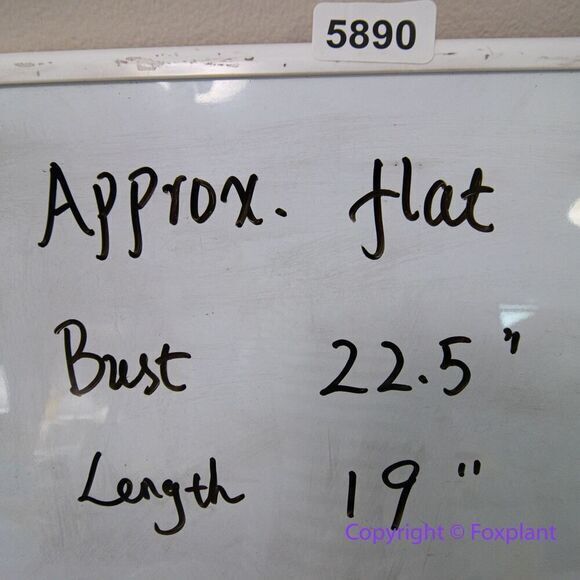 5890
Approx. flat
Bust 22.5"
Length 19"
Copyright © Foxplant